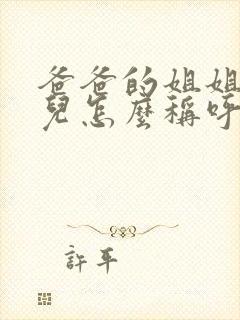 爸爸的姐姐
兒怎麼稱呼
許平